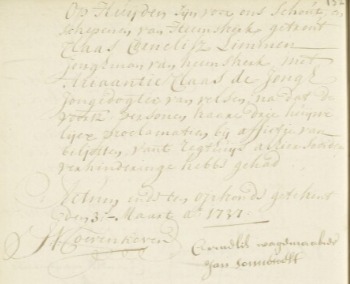 Op Huijden sijn voor ons Schout, en
schepenen van Heemskerk getrout
Claas Cornelisz Limmen
Jongeman van heemskerk met
Claas de Jong
Jongedogter van velsen, na dat de
voorsz personen haare drie huwe
lijxe proclamatien bij affictie van
belofften, vant regthuijs alhier sonder
verhinderinge hebbe gehad
Actum ende ten oirkonde geteekent
den 3 Maart ao 1737
Cornelis wagemaker
Jan